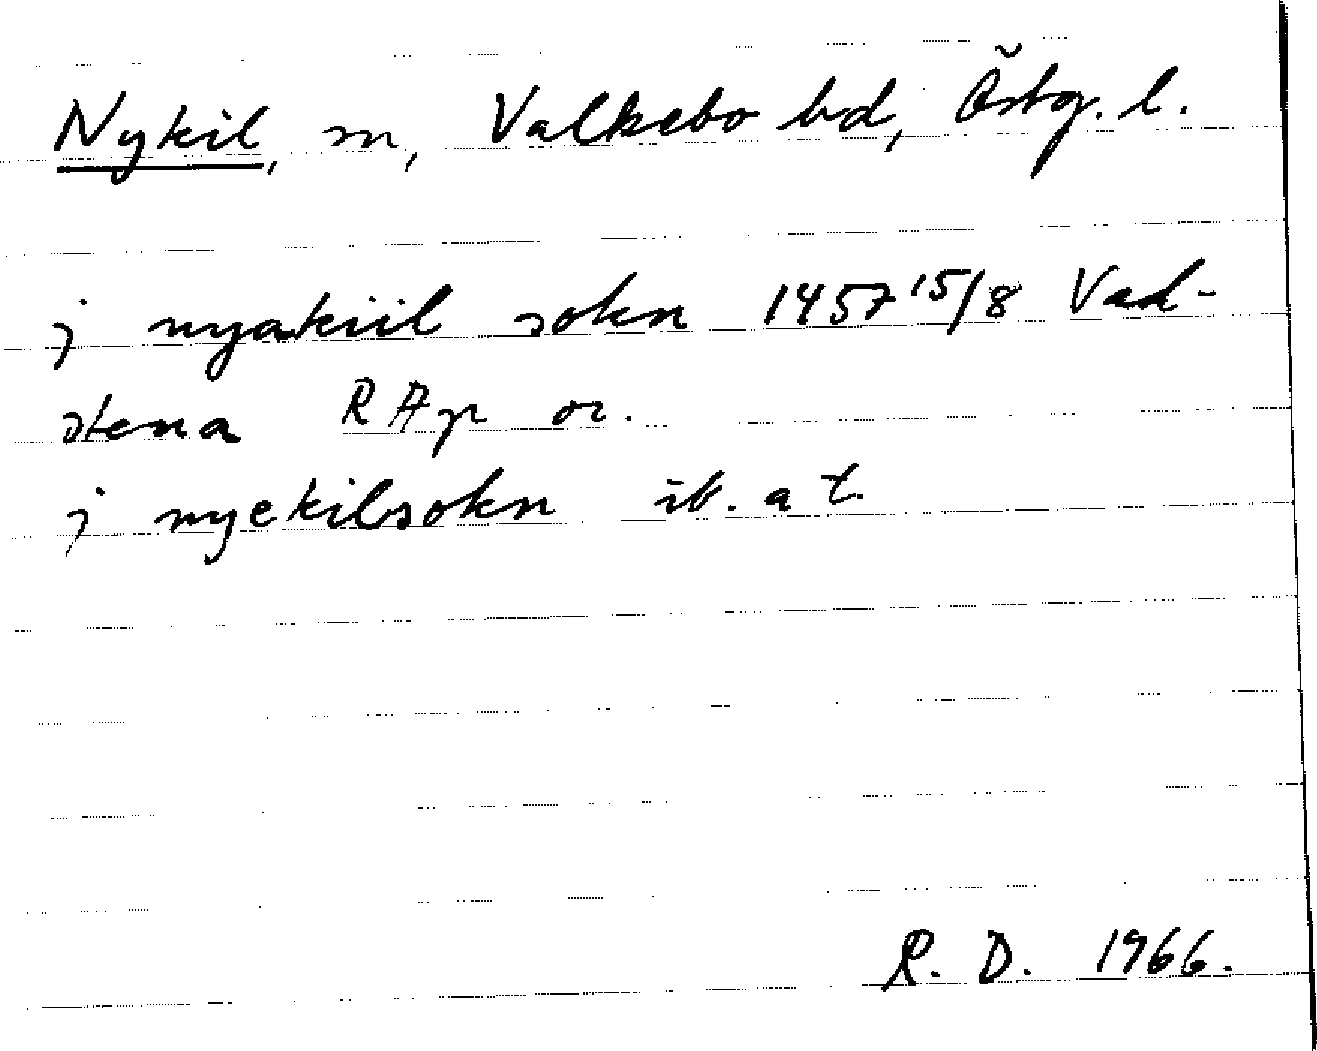 Nykil, sn, Valkebo hd, Östg. l.
j nyakiil sokn 1457 15/8 Vad-
stena RAp or.
j nyekilsokn ib. a t.
R. D. 1966.